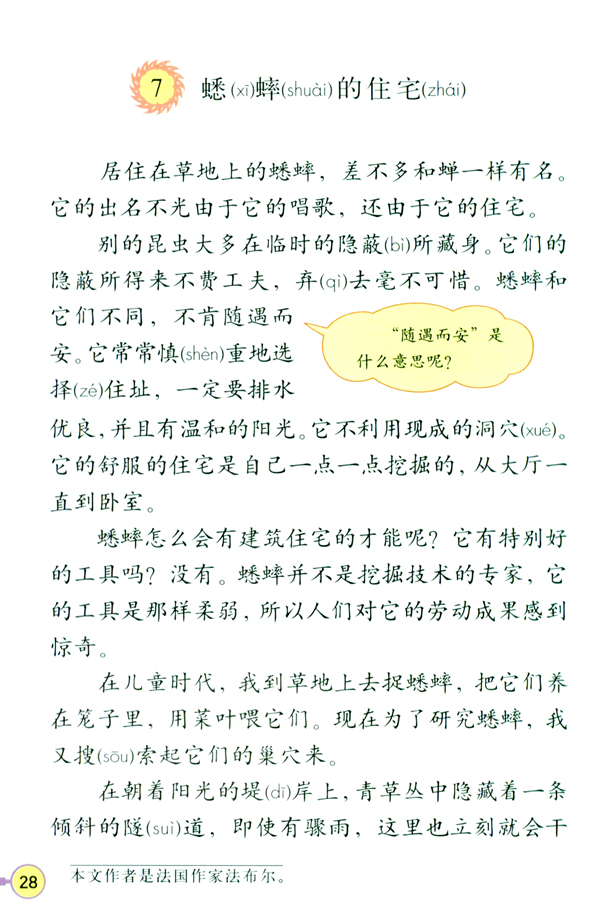 7 蟋(xī)蟀(shuài)的住宅(zhái)
居住在草地上的蟋蟀，差不多和蝉一样有名。
它的出名不光由于它的唱歌，还由于它的住宅。
别的昆虫大多在临时的隐蔽(bì)所藏身。它们的
隐蔽所得来不费工夫，弃(qì)去毫不可惜。蟋蟀和
它们不同，不肯随遇而
安。它常常慎(shèn)重地选
择(zé)住址，一定要排水
“随遇而安”是
什么意思呢？
优良，并且有温和的阳光。它不利用现成的洞穴(xué)。
它的舒服的住宅是自己一点一点挖掘的，从大厅一
直到卧室。
蟋蟀怎么会有建筑住宅的才能呢？它有特别好
的工具吗？没有。蟋蟀并不是挖掘技术的专家，它
的工具是那样柔弱，所以人们对它的劳动成果感到
惊奇。
在儿童时代，我到草地上去捉蟋蟀，把它们养
在笼子里，用菜叶喂它们。现在为了研究蟋蟀，我
又搜(sōu)索起它们的巢穴来。
在朝着阳光的堤(dī)岸上，青草丛中隐藏着一条
倾斜的隧(suì)道，即使有骤雨，这里也立刻就会干
本文作者是法国作家法布尔。
28